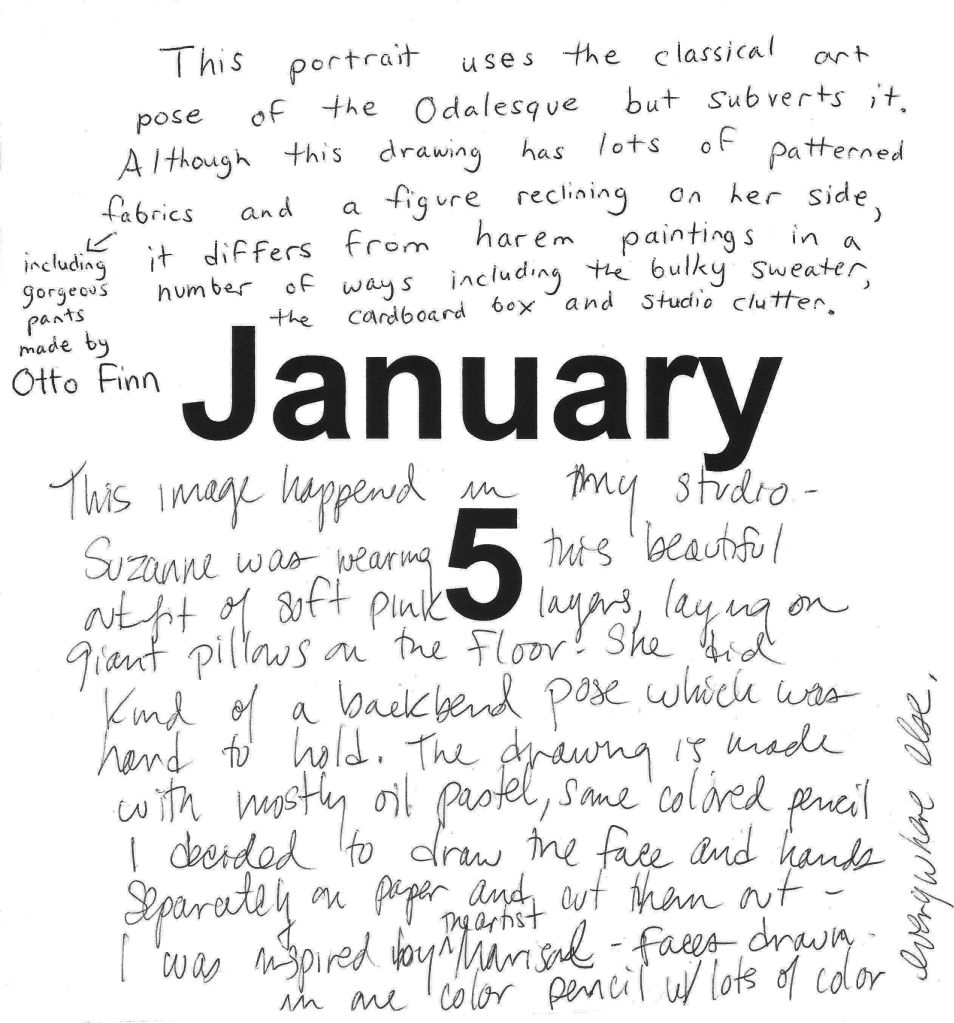 This portrait uses the classical art
pose of the Odalesque but subverts it.
Although this drawing has lots of patterned
fabrics and a figure reclining on her side,
it differs from harem paintings in a
number of ways including the bulky sweater,
the cardboard box and studio clutter.
including
gorgeous
pants
made by
Otto Finn
January
5
This image happened in my studio -
Suzanne was wearing this beautiful
outfit of soft pink layers, laying on
giant pillows on the floor. She did
kind of a backbend pose which was
hard to hold. The drawing is made
with mostly oil pastel, some colored pencil
I decided to draw the face and hands
separately on paper and cut them out -
I was inspired by the artist Marisol - faces drawn
in one color pencil w/ lots of color
everywhere else.